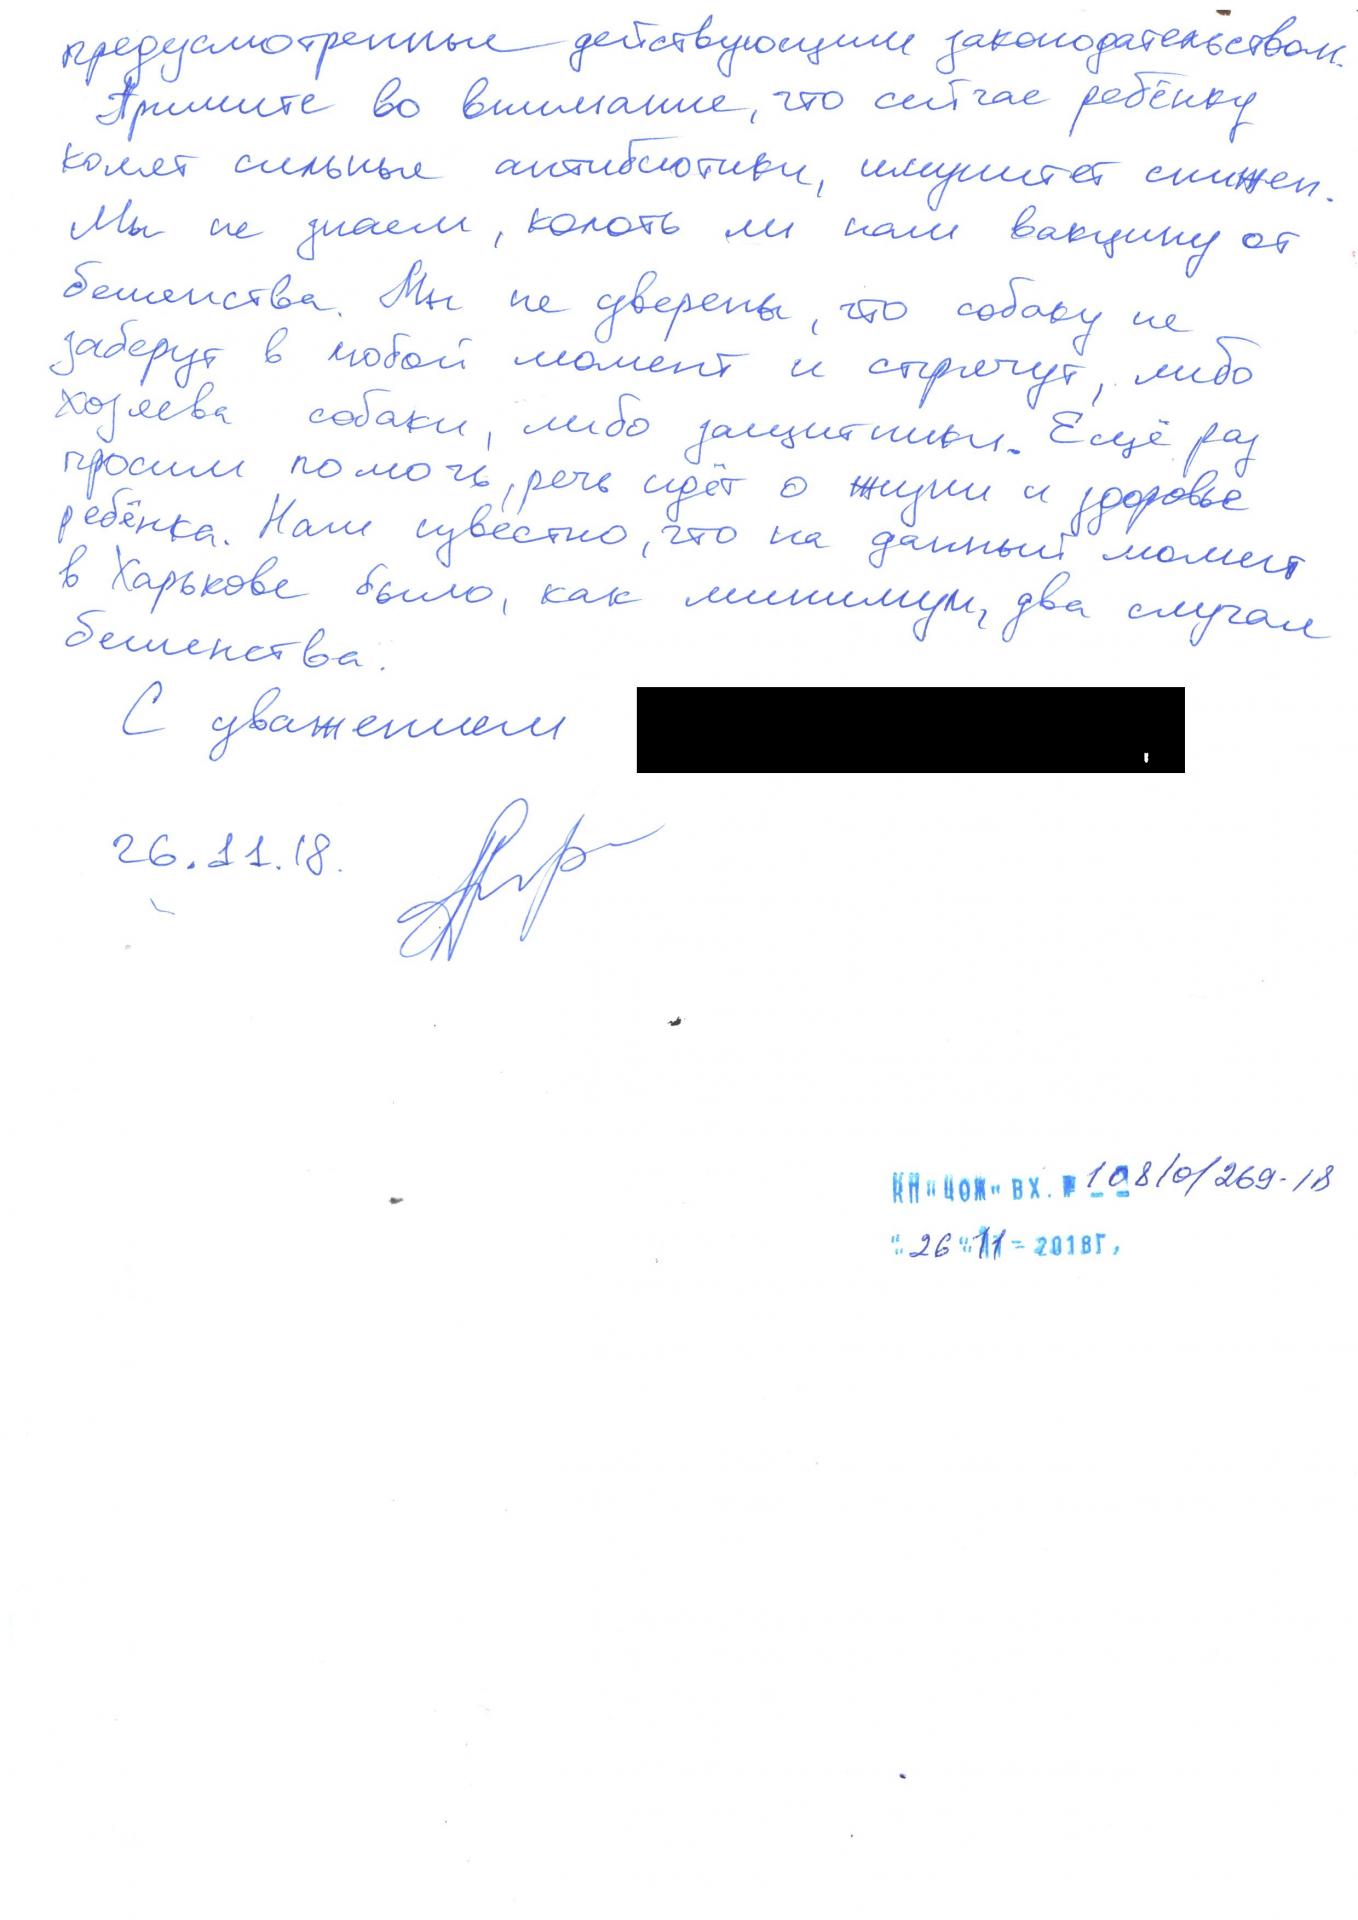 предусмотренные действующим законодательством.
Примите во внимание, что сейчас ребёнку
колят сильные антибиотики, имунитет снижен.
Мы не знаем, колоть ли нам вакцину от
бешенства. Мы не уверены, что собаку не
заберут в любой момент и спрячут, либо
хозяева собаки, либо защитники. Ещё раз
просим помочь, речь идёт о жизни и здоровье
ребёнка. Нам известно, что на данный момент
в Харькове было, как минимум, два случая
бешенства.
С уважением
26.11.18.
КП "ЦОЖ" ВХ. № 108/0/269-18
"26" 11 - 2018Г.